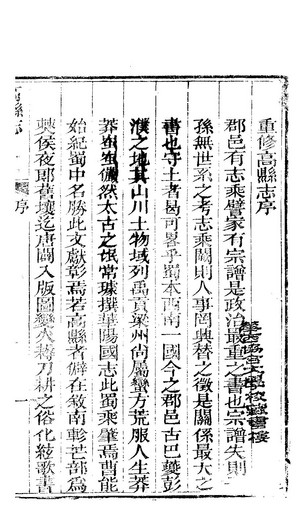 重修高縣志序
郡邑有志乘譬家有宗譜是政治最重之書也宗譜失則
孫無世系之考志乘闕則人事罔興替之徵是關係最大之
書也守土者曷可畧乎蜀本西南一國今之郡邑古巴夔彭
濮之地其山川土物域列禹貢梁州尚屬蠻方荒服人生莽
莽𤝞𤝞儼然太古之氓常璩撰華陽國志此蜀乘肇焉曹能
始紀蜀中名勝此文獻彰焉若高縣者僻在敘南軫芒部為
僰侯夜郎舊壤迄唐闢入版圖變火耨刀耕之俗化絃歌書
縣志
序